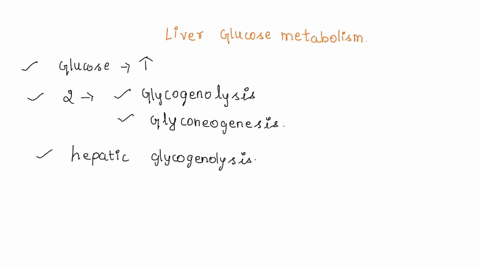 Liver Glucose metabolism.
✓ Glucose → ↑
✓ 2 → ✓ Glycogenolysis
✓ Glyconeogenesis.
✓ hepatic glycogenolysis.